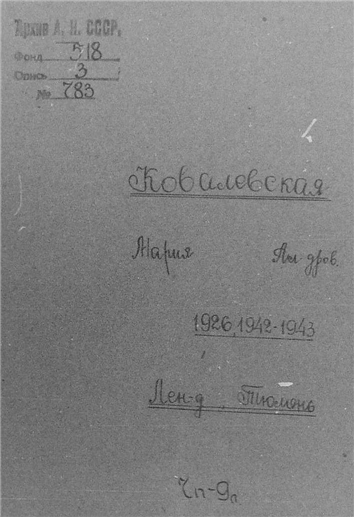 Архив А. Н. СССР.
Фонд 518
Опись 3
№ 783
Ковалевская
Мария Ал-дров.
1926, 1942-1943
Лен-д, Тюмень